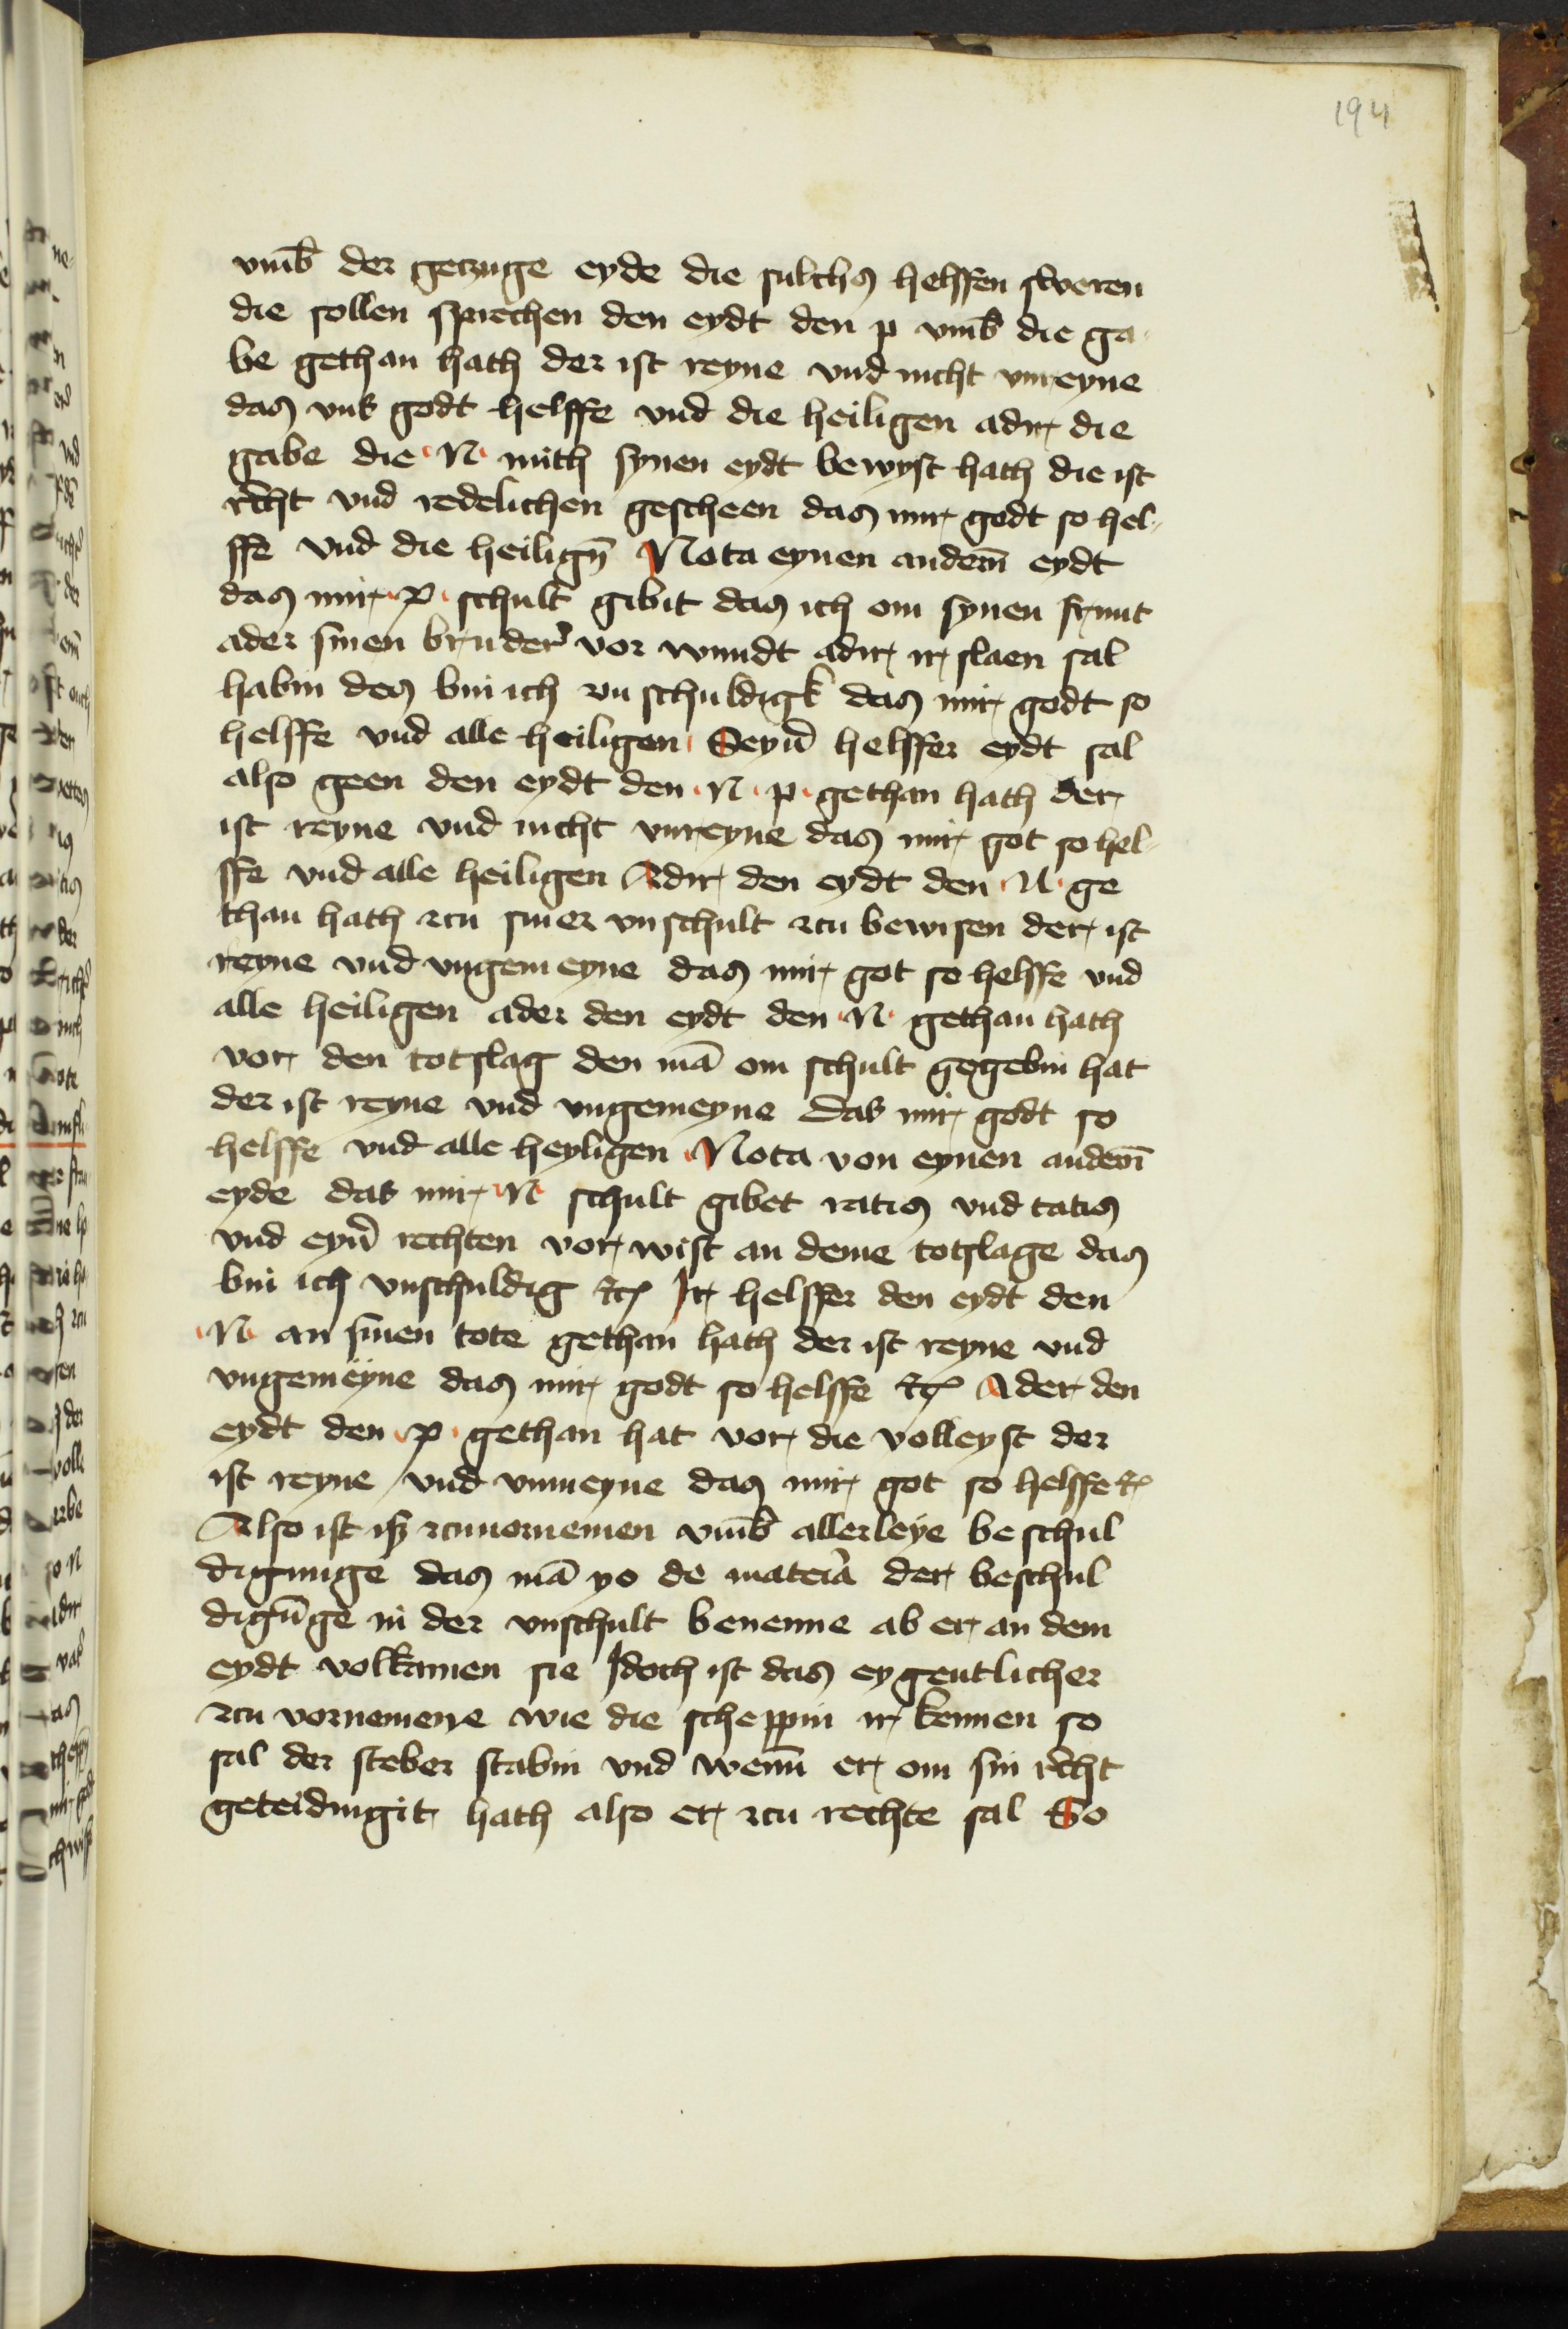 194
vm̄b der geczuge eyde die sulchs helffen sweren
die sollen sprechen den eydt den p vm̄b die ga-
be gethan hath der ist reyne vnd nicht vnreyne
das vns godt helffe vnd die heiligen adir die
gabe die N mith synen eydt bewyst hath die ist
recht vnd redelichen gescheen das mir godt so hel-
ffe vnd die heilign̄ Nota eynen andern̄ eydt
das mir p schult gibit das ich om synen frunt
ader sinen bruder vor wundt adir ir slaen sal
habin des bin ich vn schuldigk das mir godt so
helffe vnd alle heiligen Seyn̄ helffer eydt sal
also geen den eydt den N p gethan hath der
ist reyne vnd nicht vnreyne das mir got so hel-
ffe vnd alle heiligen Adir den eydt den N ge
than hath zcu siner vnschult zcu bewisen der ist
reyne vnd vngemeyne das mir got so helffe vnd
alle heiligen ader den eydt den N gethan hath
vor den totslag den mā om schult gegebin hat
der ist reyne vnd vngemeyne das mir godt so
helffe vnd alle heyligen Nota von eynen andern̄
eyde das mir N schult gibet ratis vnd tatis
vnd eyn̄ rechten vor wist an deme totslage das
bin ich vnschuldig etc Ir helffer den eydt den
N an sinen tote gethan hath der ist reyne vnd
vngemeyne das mir godt so helffe etc Ader den
eydt den p gethan hat vor die volleyst der
ist reyne vnd vnmeyne das mir got so helffe etc
Also ist iß zcuuornemen vm̄b allerleye beschul
digunge das mā yo de materia der beschul
digūge in der vnschult benenne ab er an dem
eydt volkamen sie Idoch ist das eygentlicher
zcu vornemene wie die scheppin ir kennen so
sal der steber stabin vnd wenn̄ er om sin recht
geteidingit hath also er zcu rechte sal So